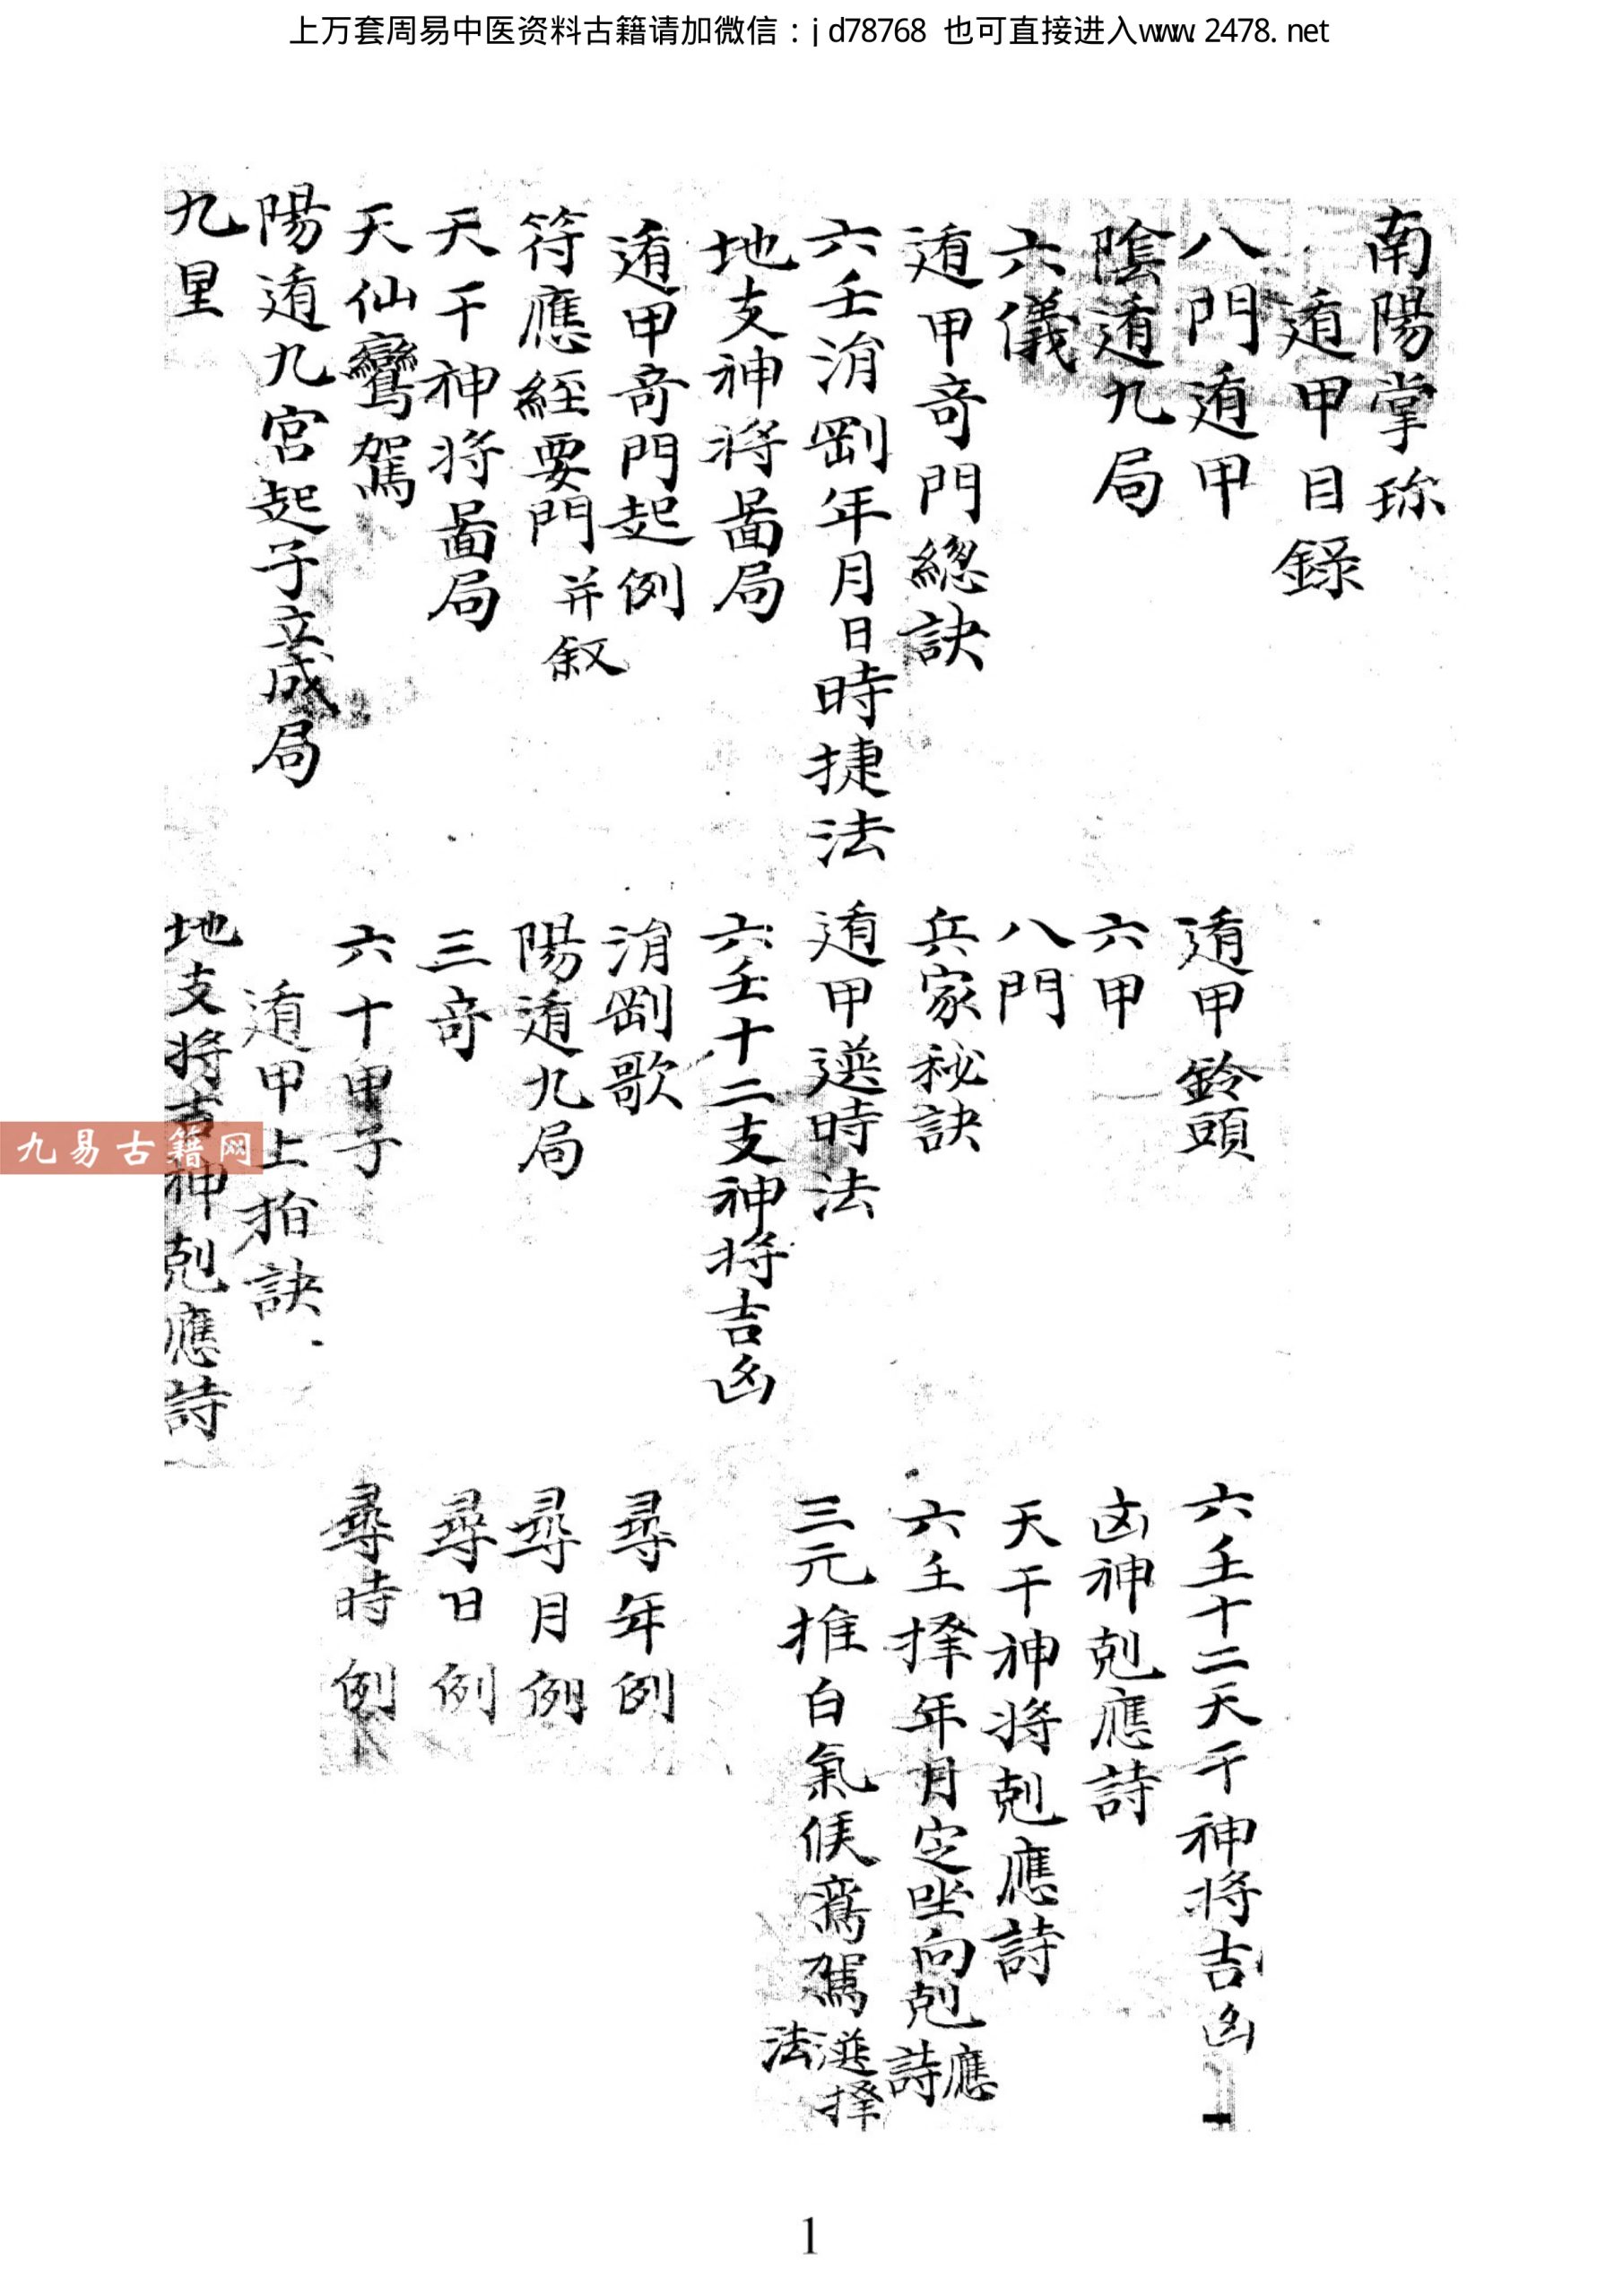 上万套周易中医资料古籍请加微信：jd78768 也可直接进入www.2478.net
南陽掌珎
遁甲目錄
八門遁甲
陰遁九局
六儀
遁甲竒門總訣
六壬涓剛年月日時捷法
地支神將啚局
遁甲竒門起例
符應經要門并叙
天干神將啚局
天仙鸞駕
陽遁九宮起子立成局
九星
遁甲鈴頭
六甲
八門
兵家秘訣
遁甲選時法
六壬十二支神將吉凶
涓剛歌
陽遁九局
三竒
六十甲子
遁甲上指訣
地支將吉神剋應詩
六壬十二天干神將吉凶
凶神剋應詩
天干神將剋應詩
六壬擇年月定坐向剋應詩
三元推白氣候鸞駕選擇法
尋年例
尋月例
尋日例
尋時例
九易古籍网
1